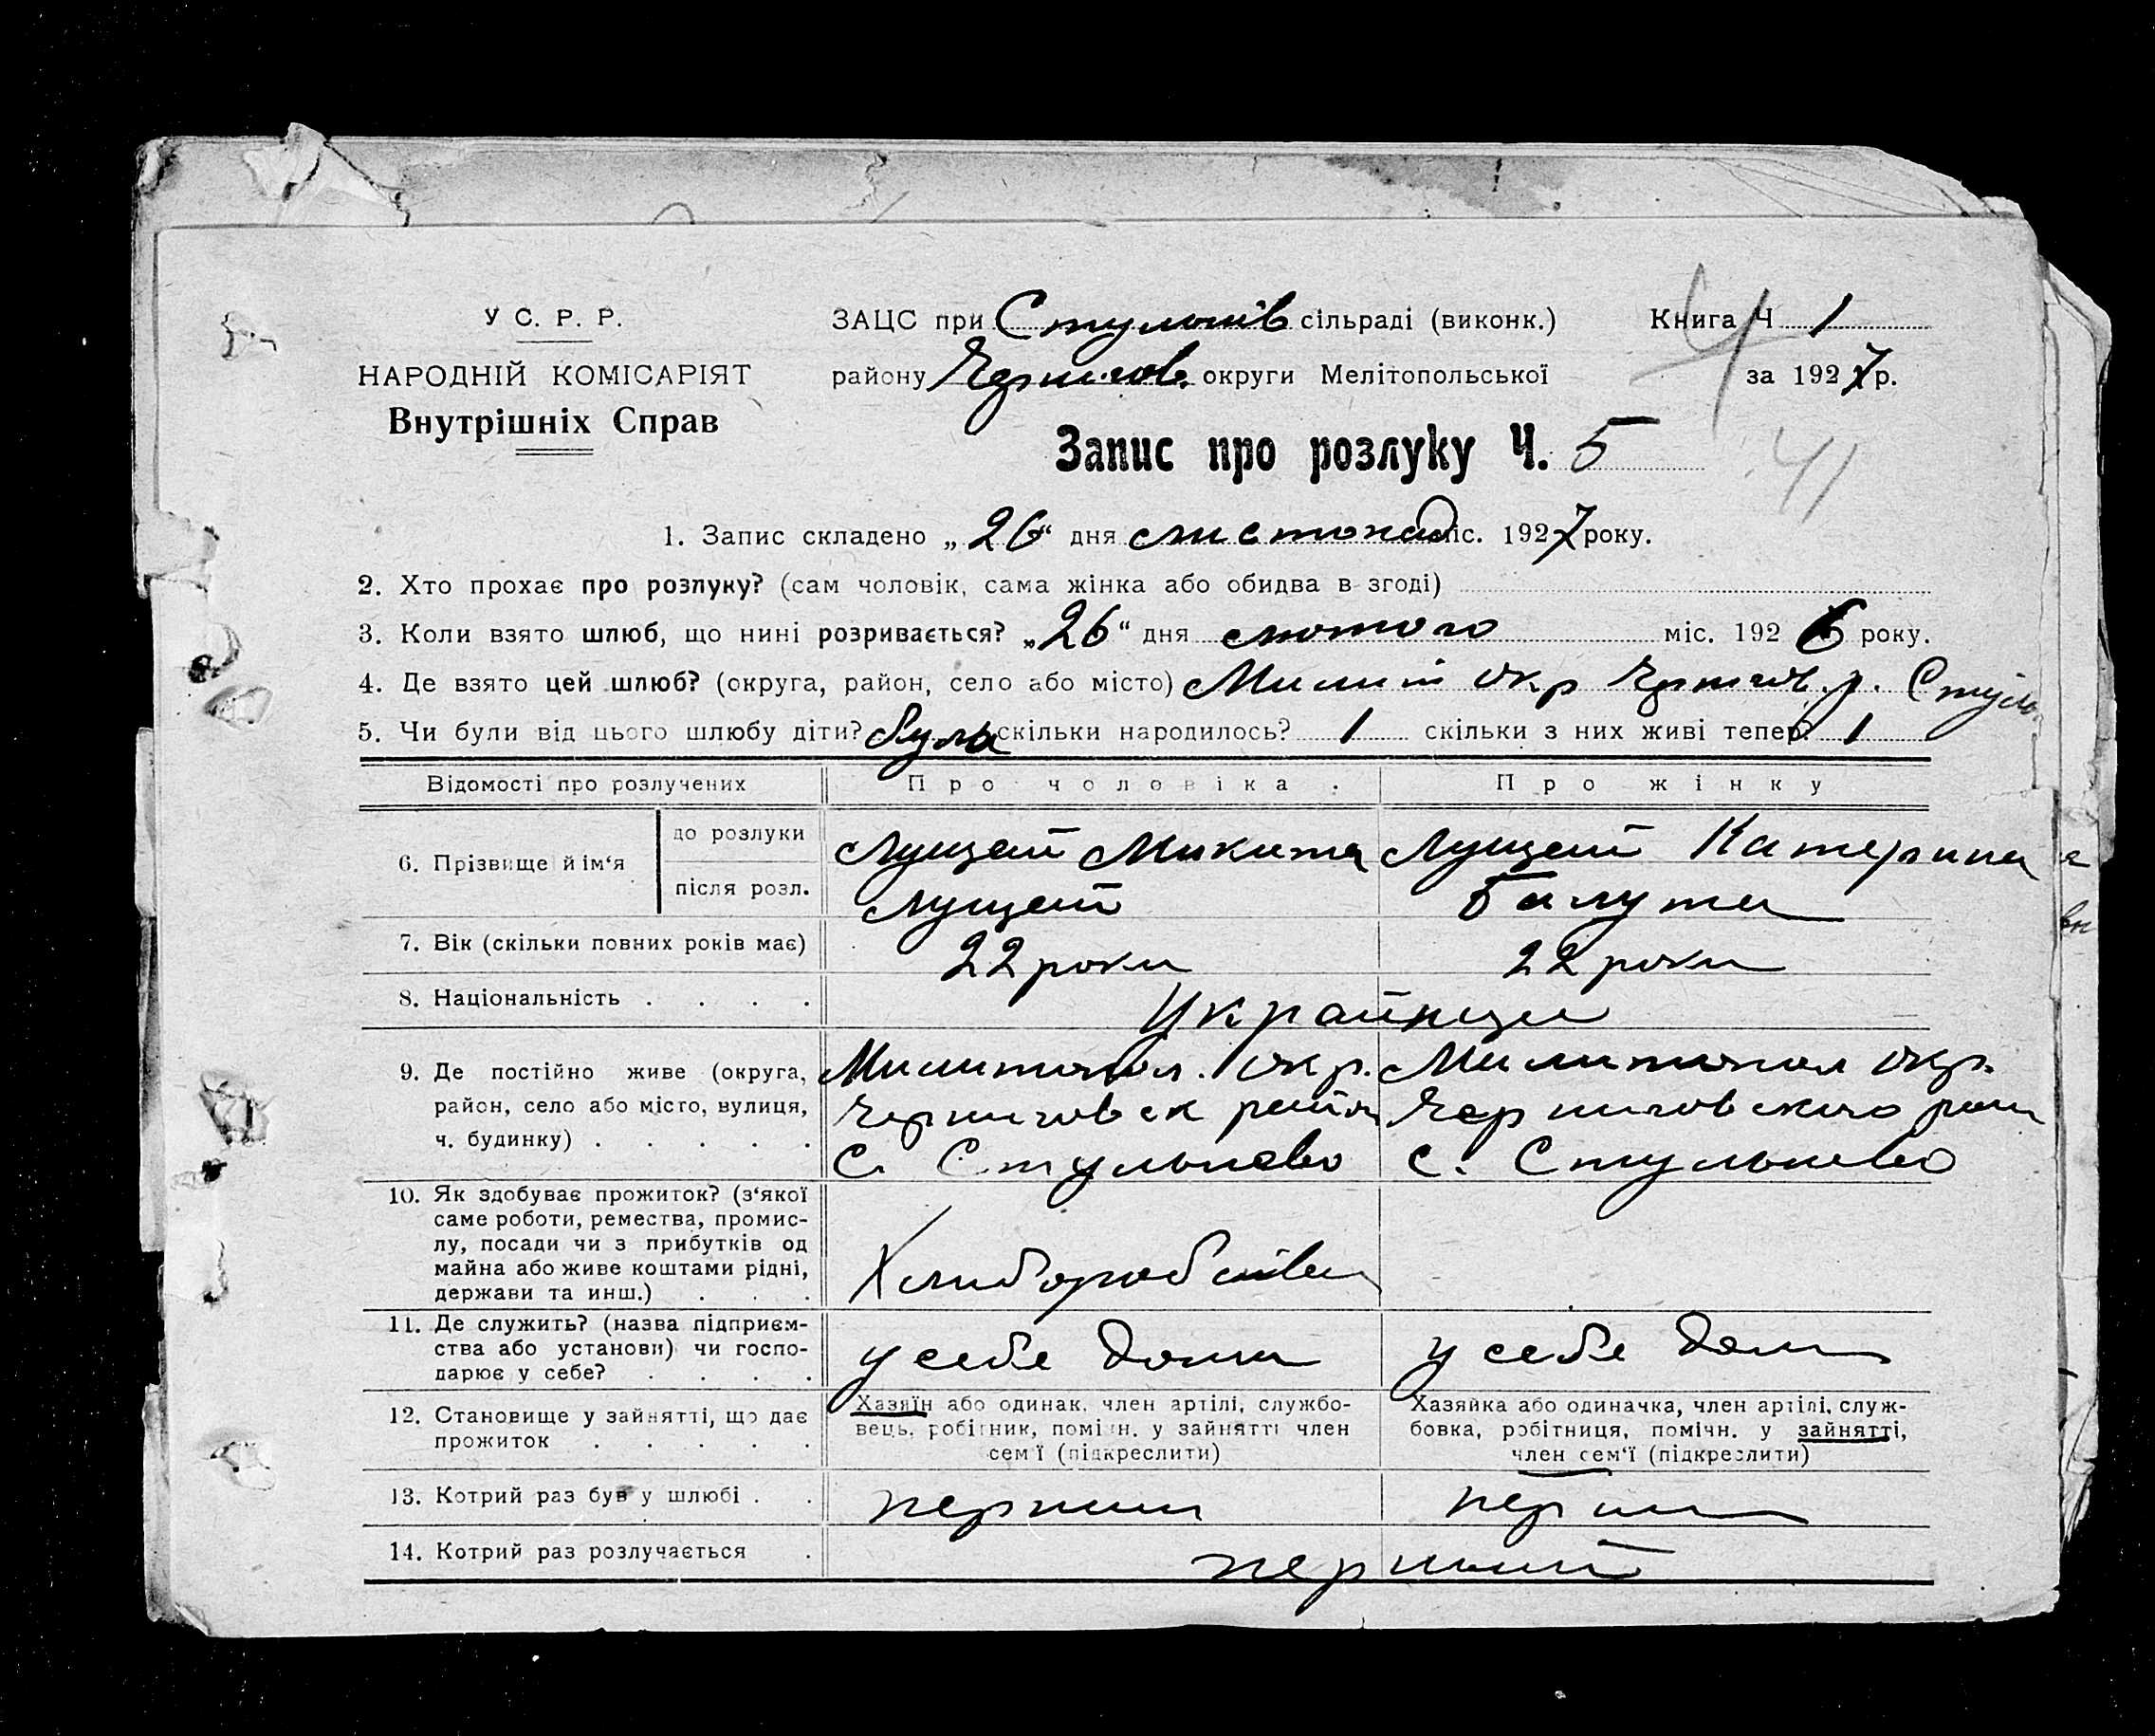 У С. Р. Р.
НАРОДНІЙ КОМІСАРІЯТ
Внутрішніх Справ
ЗАЦС при Стульнів сільраді (виконк.)
району Черниговs округи Мелітопольської
Книга Ч 1
за 1927 р.
41
Запис про розлуку Ч. 5
1. Запис складено „26“ дня листопад міс. 1927 року.
2. Хто прохає про розлуку? (сам чоловік, сама жінка або обидва в згоді)
3. Коли взято шлюб, що нині розривається? „26“ дня лютого міс. 1926 року.
4. Де взято цей шлюб? (округа, район, село або місто) окр р. Стуль
5. Чи були від цього шлюбу діти? була скільки народилось? 1 скільки з них живі тепер? 1
Відомості про розлучених Про чоловіка. Про жінку
6. Прізвище й ім‘я
до розлуки Лущай Микита Лущай Катерина
після розл. Лущай Балута
7. Вік (скільки повних років має) 22 роки 22 роки
8. Національність . . . . Українци
9. Де постійно живе (округа, Милитопол. окр. Милитопол окр.
район, село або місто, вулиця, Черниговск район Черниговского раи
ч. будинку) . . . . . с. Стульнево с. Стульнево
10. Як здобуває прожиток? (з‘якої
саме роботи, ремества, промис-
лу, посади чи з прибутків од
майна або живе коштами рідні,
держави та инш.) . . .
Хлиборобсів
11. Де служить? (назва підприєм-
ства або установи) чи госпо-
дарює у себе? . . . .
у себе дома у себе дома
12. Становище у зайнятті, що дає
прожиток . . . . .
Хазяїн або одинак, член артілі, службо-
вець, робітник, помічн. у зайнятті член
сем‘ї (підкреслити)
Хазяйка або одиначка, член артілі, служ-
бовка, робітниця, помічн. у зайнятті,
член сем‘ї (підкреслити)
13. Котрий раз був у шлюбі . . перший перший
14. Котрий раз розлучається . перший